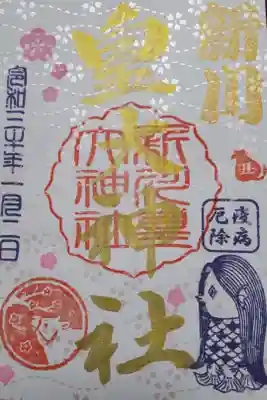 新川
皇大神社
新川皇
大神社
丑
疫病
厄除
令和三年一月二日